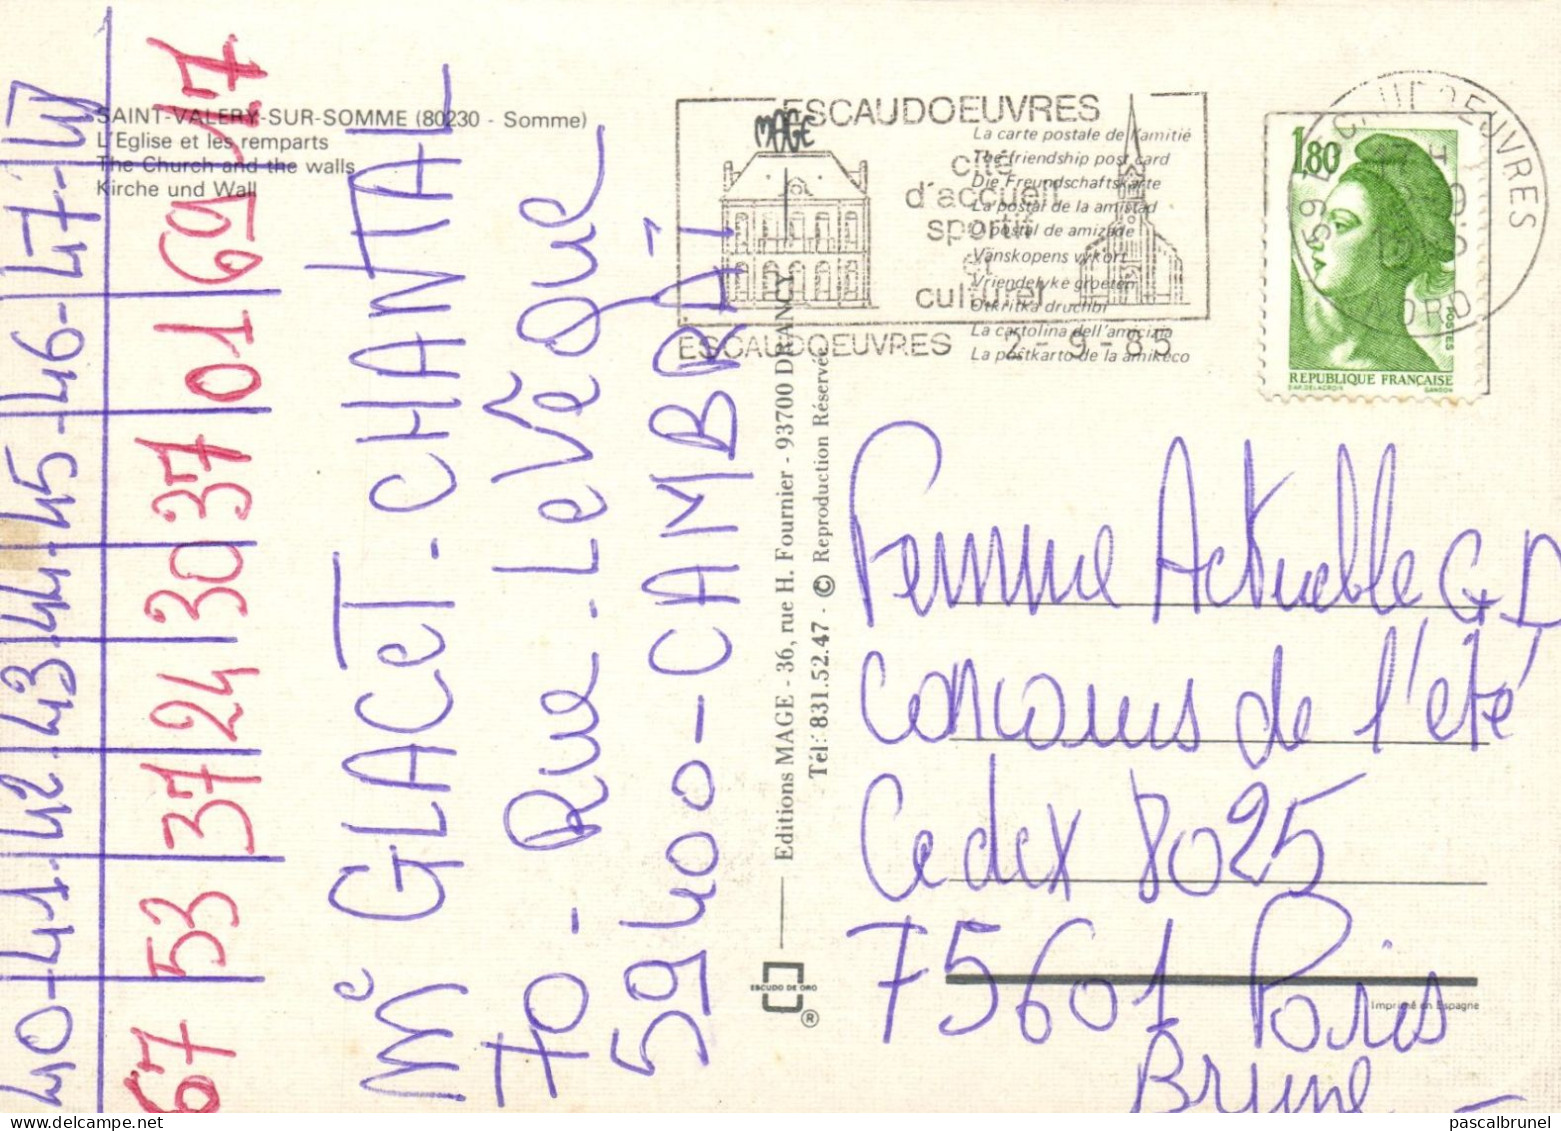 SAINT-VALERY-SUR-SOMME (80230 - Somme)
L'Eglise et les remparts
The Church and the walls
Kirche und Wall
ESCAUDOEUVRES
cité
d'accueil
sportif
et
culturel
ESCAUDOEUVRES 2-9-85
MAGE
La carte postale de l'amitié
The friendship post card
Die Freundschaftskarte
La postal de la amistad
O postal de amizade
Vänskopens vykort
Vriendelyke groeten
Otkritka druchbi
La cartolina dell'amicizia
La postkarto de la amikeco
1,80
POSTES
REPUBLIQUE FRANÇAISE
GANDON
59 ESCAUDOEUVRES
NORD
40-41-42-43-44-45-46-47-48
67 53 37 24 30 37 01 69 17
Me GLACET-CHANTAL
70-Rue-LevêQue
59400-CAMBRAÏ
Editions MAGE - 36, rue H. Fournier - 93700 DRANCY
Tél: 831.52.47 - © Reproduction Réservée
ESCUDO DE ORO
®
Femme Actuelle G.D
concours de l'été
Cedex 8025
75601 Paris
Brune
Imprimé en Espagne
pascalbrunel